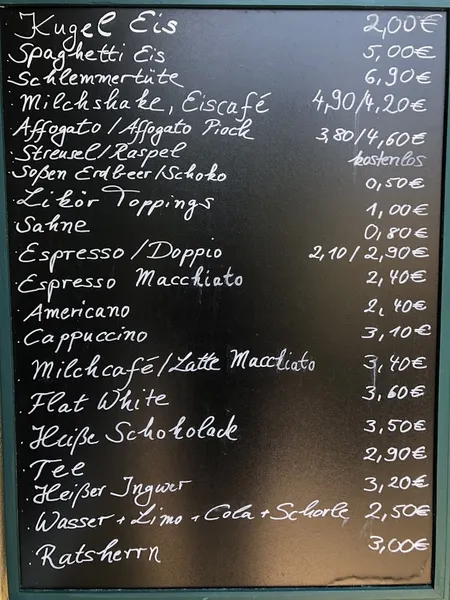 Kugel Eis 2,00€
Spaghetti Eis 5,00€
Schlemmertüte 6,90€
Milchshake, Eiscafé 4,90/4,20€
Affogato/Affogato Piock 3,80/4,60€
Streusel/Raspel kostenlos
Soßen Erdbeer/Schoko 0,50€
Likör Toppings 1,00€
Sahne 0,80€
Espresso/Doppio 2,10/2,90€
Espresso Macchiato 2,40€
Americano 2,40€
Cappuccino 3,10€
Milchcafé/Latte Macchiato 3,40€
Flat White 3,60€
Heiße Schokolade 3,50€
Tee 2,90€
Heißer Ingwer 3,20€
Wasser + Limo + Cola + Schorle 2,50€
Ratsherrn 3,00€